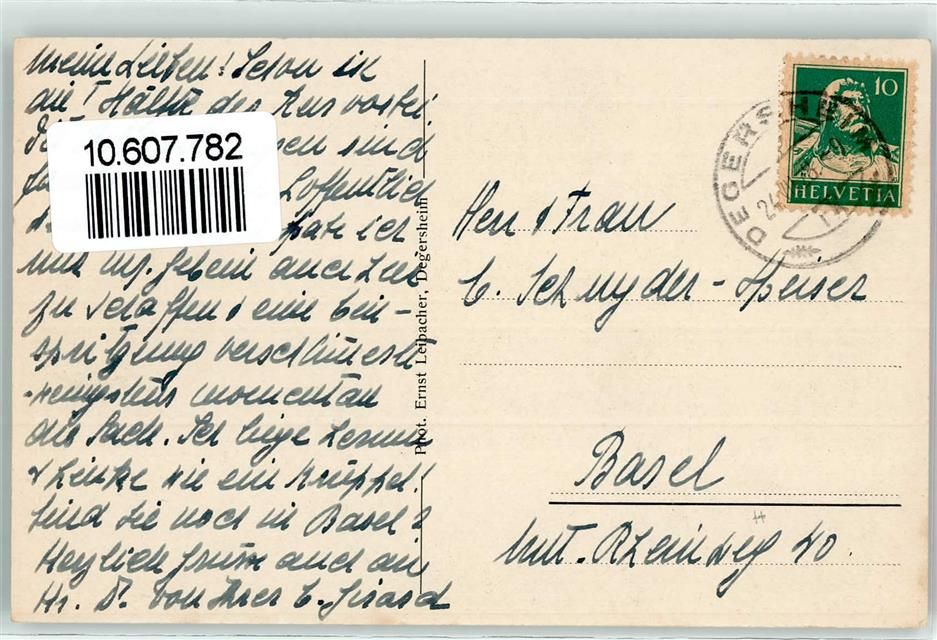 Meine Lieben! Schon ist
die Hälfte der Kur vorbei
sind
Hoffentlich
ich
auch
zu schaffen & eine Ein-
spritzung verschlimmert
wenigstens momentan
die Sach. Ich liege herum
& hinke wie ein Krüppel!
Sind Sie noch in Basel?
Herzlich Grüsse auch an
Hr. Dr. von Ihrer E. Girard
10.607.782
Phot. Ernst Leibacher, Degersheim
10
HELVETIA
DEGERSHEIM
Herr & Frau
E. Schnyder-Speiser
Basel
Unt. Rheinweg 40.